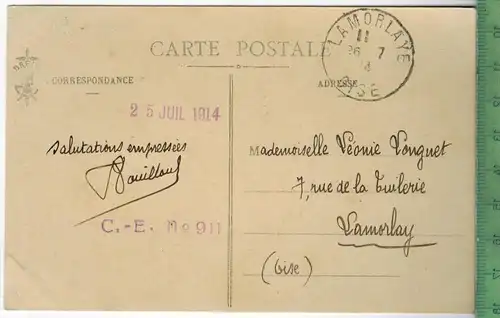 CARTE POSTALE
CORRESPONDANCE
ADRESSE
LAMORLAYE
11
26 7
14
OISE
25 JUIL 1914
Salutations empressées
C.-E. No 911
Mademoiselle Léonie Vonguet
7, rue de la Tuilerie
Lamorlay
(Oise)